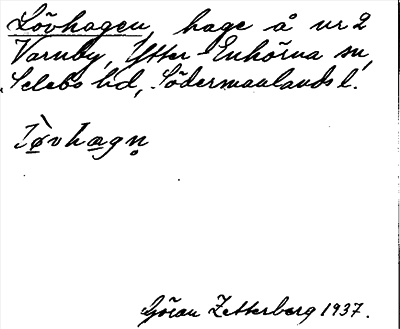 Lövhagen, hage å nr 2
Varnby, Ytter Enhörna sn,
Selebo hd, Södermanlands l.
Lø̀vhagn̥
Göran Zetterberg 1937.